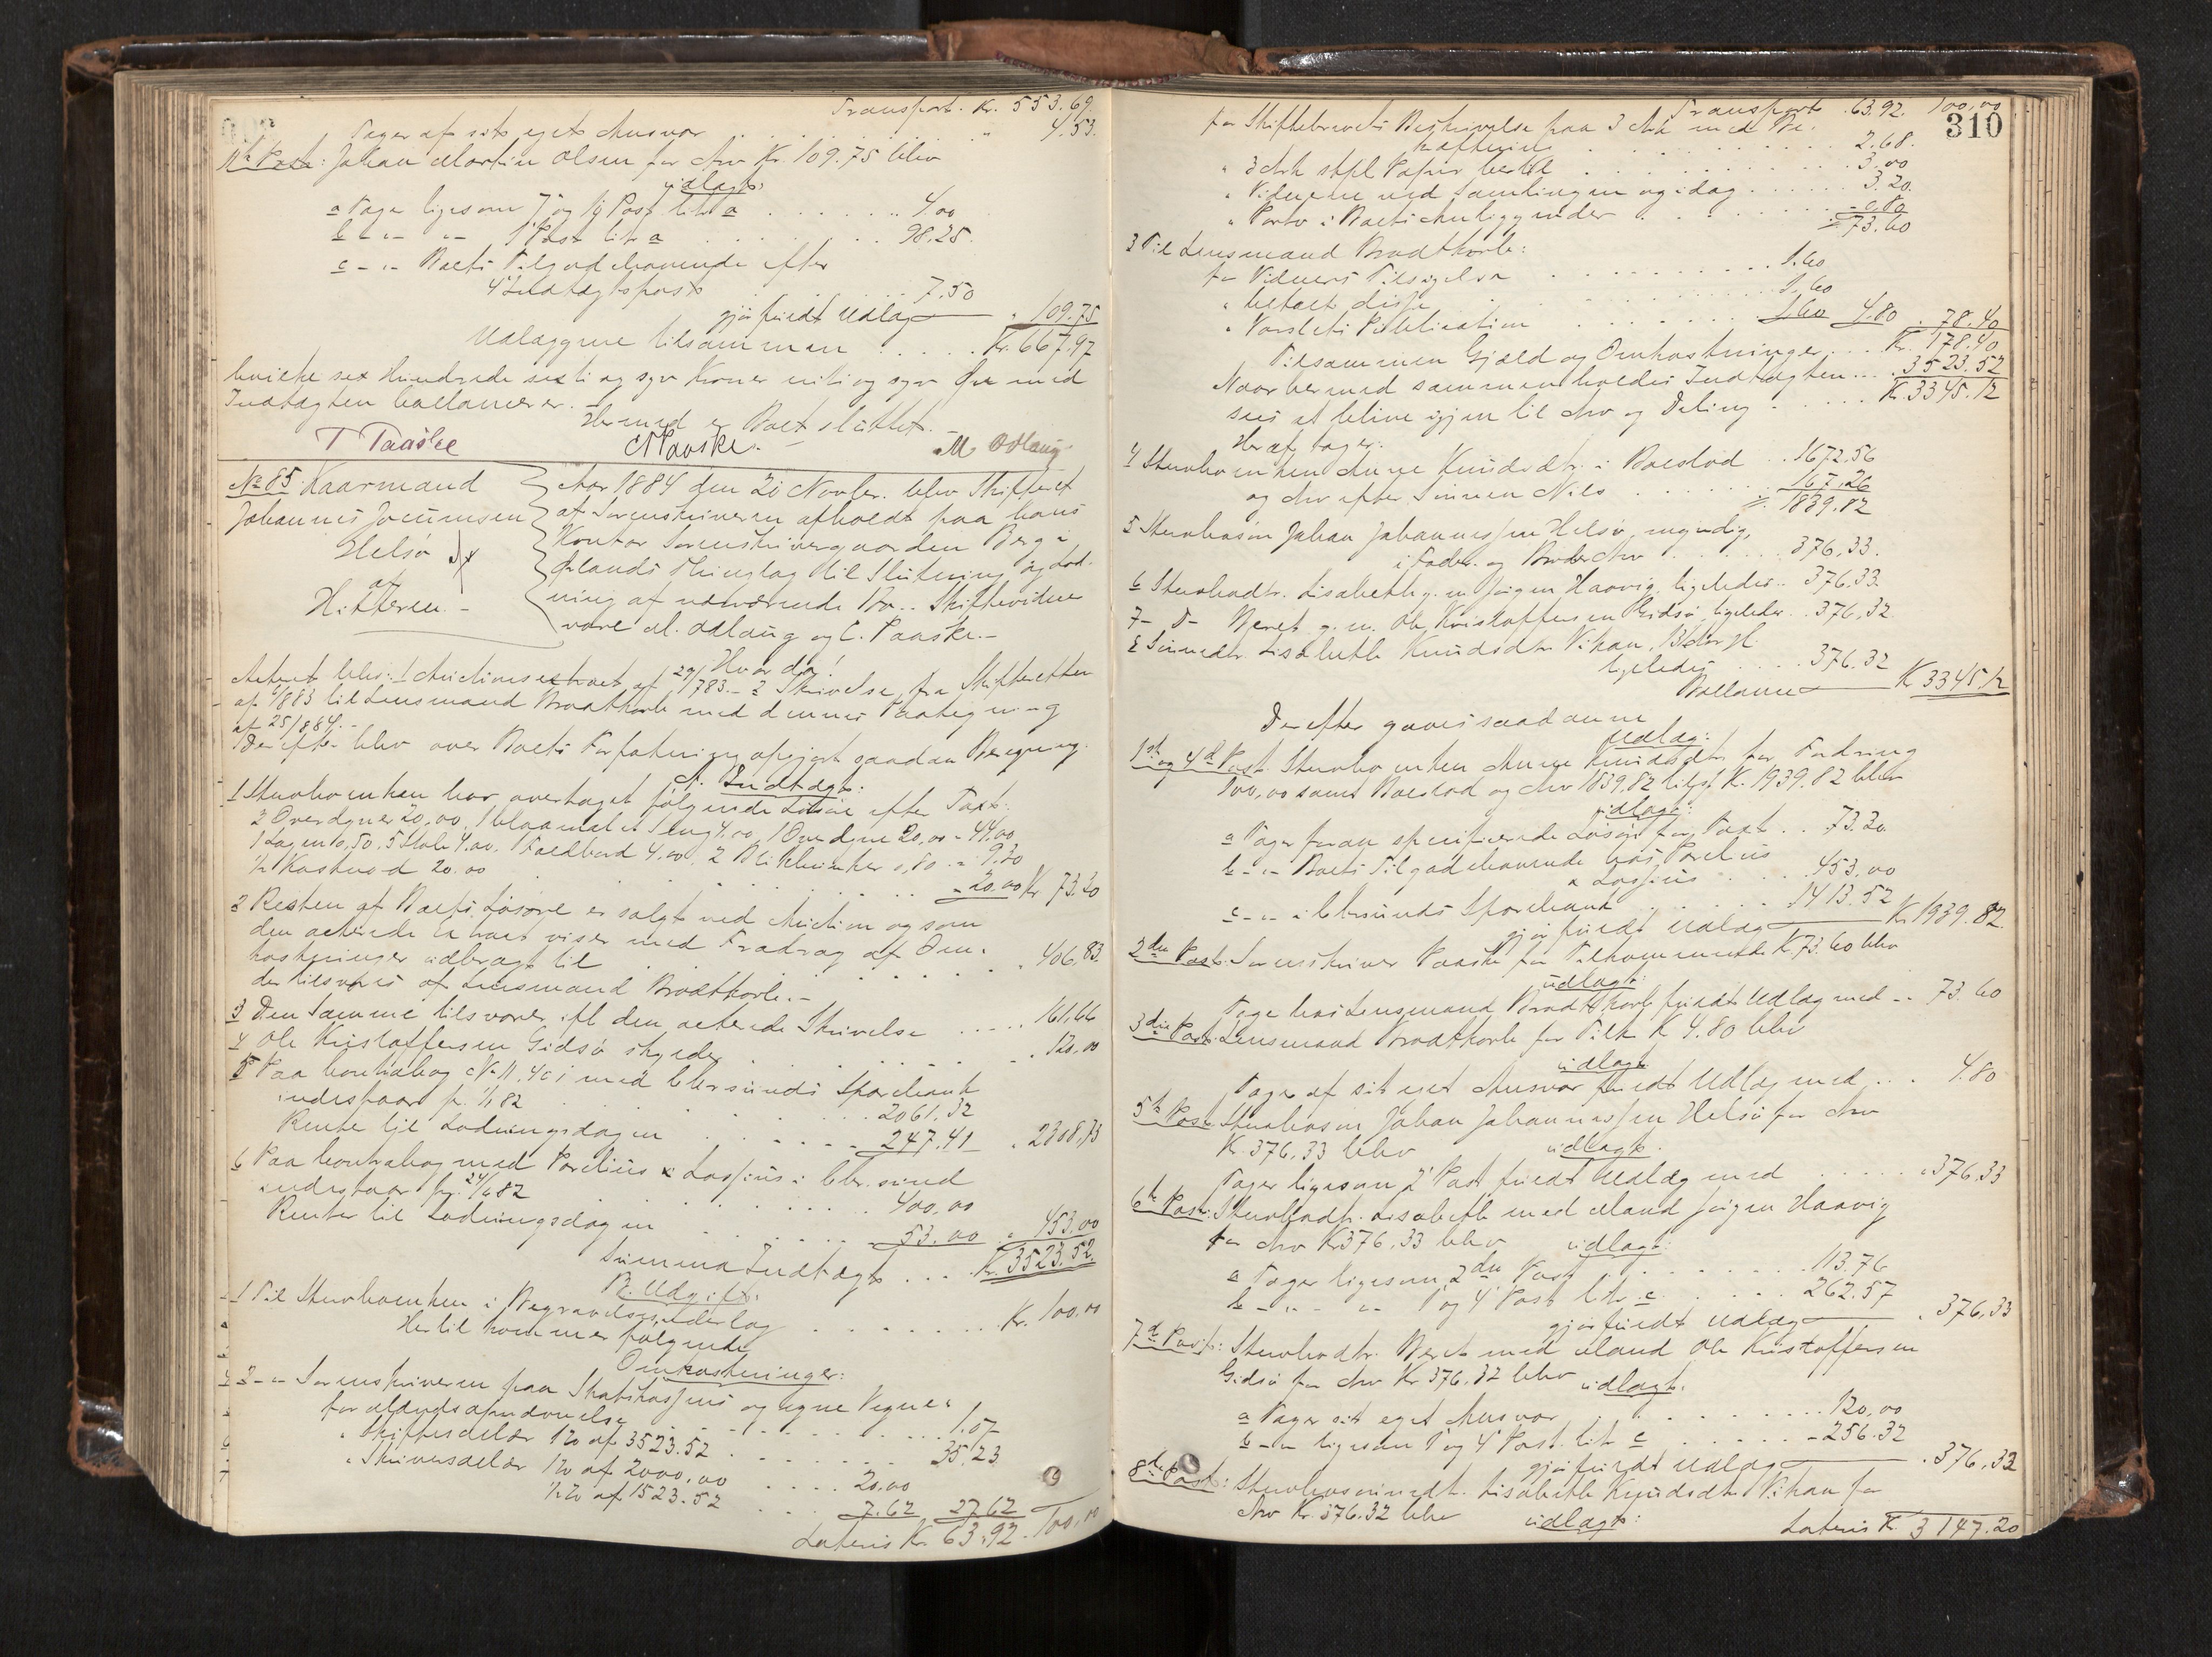 Transport. Kr. 553.69.
Tager af sit eget Ansvar . . . " 4.53.
11te Post: Johan Martin Olsen for Arv Kr. 109.75 blev
udlagt:
a Tager ligesom 7 og 19 Post litr a . . . 4.00
b - " - " - 1 Post litr a . . . 98.25.
c - " - Boets Tilgodehavende efter
4 Indtægtspost . . . 7.50
gjør fuldt Udlæg — " 109.75
Udlæggene tilsammen . . . Kr. 667.97
hvilke sex Hundrede sexti og syv Kroner niti og syv Øre med
Indtægten ballancerer. —
Hermed er Boet sluttet. —
T Paaske C Paaske. M Odlaug
No 85. Kaarmand
Johannes Jocumsen
Helsø
af
Hitteren. —
Aar 1884 den 20 Novbr. blev Skifteret
af Sorenskriveren afholdt paa hans
Kontor Sorenskrivergaarden Berg i
Ørlands Thinglag til Slutning og Lod-
ning af nærværende Bo. - Skiftevidner
vare M. Odlaug og C. Paaske. —
Hvorda!
Acteret blev: 1 Auctionsextract af 29/7 83. - 2 Skrivelse fra Skifteretten
af 4/8 83 til Lensmand Brodtkorb med dennes Paategning
af 25/8 84. —
Derefter blev over Boets Forfatning opgjort saadan Beregning.
A. Indtægt:
1 Stervboenken har overtaget følgende Løsøre efter Taxt:
2 Overdyner 20,00, 1 blaamalet Seng 4.00, 1 Overdyne 20,00 = 44,00
1 Lagen 0,50, 5 Stole 4.00, Foldbord 4,00, 2 Blikbunker 0,80 = 9.30
1/2 Kostnod 20.00 . . . - 20.00 Kr. 73.30
2 Resten af Boets Løsøre er solgt ved Auction og som
den acterede Extract viser med Fradrag af Om-
kostninger udbragt til . . . " 406.83.
der tilsvares af Lensmand Brodtkorb. —
3 Den samme tilsvarer ifl den acterede Skrivelse . . . 161,66
4 Ole Kristoffersen Gidsø skylder . . . " 120,00
5 Paa Contrabog No 11,401 med Chrsunds Sparebank
indestaar pr. 1/1 82 . . . 2061.32
Renter til Lodningsdagen . . . 247.41 " 2308,73
6 Paa Contrabog med Parelius & Lossius i Chr.sund
indestaar pr. 24/6 82 . . . 400,00
Renter til Lodningsdagen . . . 53.00 " 453.00
Summa Indtægt . . . Kr. 3523.52.
B. Udgift.
1 Til Stervboenken i Begravelsesvederlag . . . Kr. 100.00
Hertil kommer følgende
Omkostninger:
2 - " Sorenskriveren paa Statskassens og egne Vegne:
for Avertissements . . . 1.07
" Skiftesdeler 1% af 3523.52 . . . 35.23
" Skriversdeler 1% af 2000,00 . . . 20.00
1/2% af 1523.52 . . . 7.62 27.62
Lateris Kr. 63.92 - 100,00
310
Transport . 63.92. 100,00
for Skiftebrevets Beskrivelse paa 3 Ark med Be-
kræftelse . . . 2.68.
" 3 Ark stpl Papir bertil . . . 3.00
" Vidnerne ved Samlingen og idag . . . 3.20.
" Porto i Boets Anliggender . . . 0.80 = 73.60
3 Til Lensmand Brodtkorb:
for Vidners Tilsigelse . . . 1.60
" betalt disse . . . 1.60
" Varslets Publication . . . 1.60 4.80 . 78.40
Tilsammen Gjæld og Omkostninger . . . Kr. 178.40
Naar hermed sammenholdes Indtægten . . . 3523.52
sees at blive igjen til Arv og Deling . . . Kr. 3345.12
Heraf tager:
4 Stervboenken Anne Knudsdtr. i Boeslod . . 1672.56
og Arv efter Sønnen Nils . . . 167.26 = 1839.82
5 Stervbosøn Johan Johannessen Helsø, myndig,
i Fader- og Broder Arv . . . 376,33.
6 Stervbodtr. Lisabeth g. m. Jørgen Haavig, ligeledes . . 376.33
7 - D - Beret g. m. Ole Kristoffersen Gidsø, ligeledes . . 376,32.
8 Sønnedtr. Lisabeth Knudsdtr Vikan,
ligeledes . . . 376.32
Ballance — Kr 3345.12
Derefter gaves saadanne
Udlæg:
1ste og 4de Post. Stervboenken Anne Knudsdtr for Fordring
100,00 samt Boeslod og Arv 1839,82 tilsst Kr. 1939.82 blev
udlagt:
a Tager foran specificerede Løsøre for Taxt . . 73.30
b - " - Boets Tilgodehavende hos Parelius
& Lossius . . . 453.00
c - " - i Chrsunds Sparebank . . . 1413.52
gjør fuldt Udlæg — Kr. 1939.82.
2den Post: Sorenskriver Paaske for Tilkommende Kr. 73.60 blev
udlagt:
Tager hos Lensmand Brodtkorb fuldt Udlæg med . . 73.60
3die Post: Lensmand Brodtkorb for Tilk. Kr 4.80 blev
udlagt
Tager af sit eget Ansvar fuldt Udlæg med . . . 4.80
5te Post: Stervbosøn Johan Johannessen Helsø for Arv
Kr. 376,33 blev udlagt.
Tager ligesom 2 Post fuldt Udlæg med . . . " 376.33
6te Post: Stervbodtr. Lisabeth med Mand Jørgen Haavig
for Arv Kr 376,33 blev udlagt:
a Tager ligesom 2den Post . . . 113.76
b - " - " - 1 og 4 Post litr. c . . . 262.57
gjør fuldt Udlæg — " 376,33
7de Post: Stervbodtr. Beret med Mand Ole Kristoffersen
Gidsø for Arv Kr. 376.32 blev udlagt.
a Tager sit eget Ansvar . . . 120,00
b - " - ligesom 1 og 4 Post. litr c . . . - 256.32
gjør fuldt Udlæg — . 376,32
8de Post: Stervbosønnedtr. Lisabeth Knudsdtr Vikan for
Arv Kr. 376.32 blev udlagt:
Lateris Kr. 3147.20